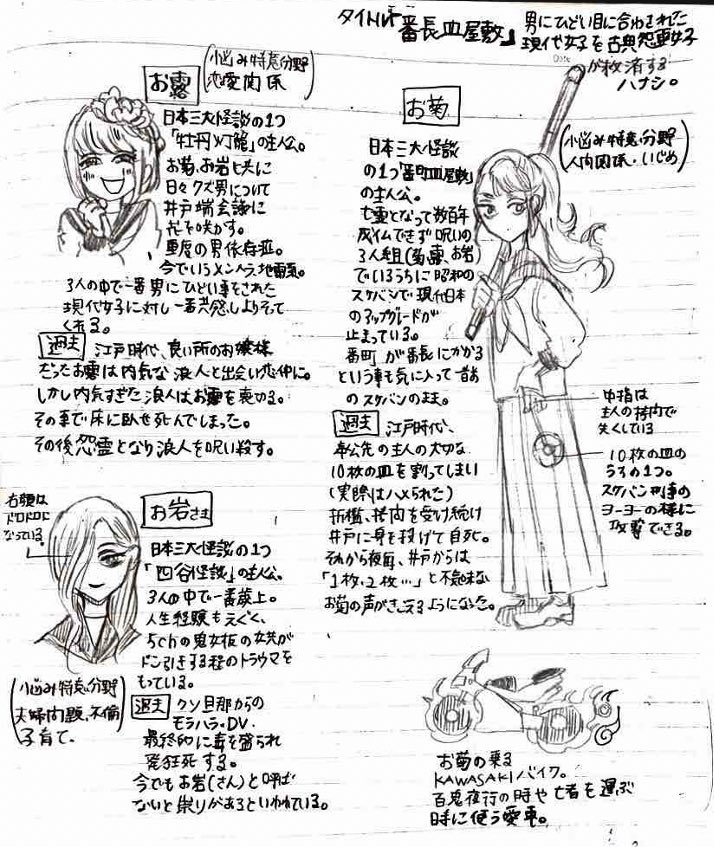 タイトル『番長皿屋敷』
男にひどい目に合わされた
現代女子を古典怨霊女子
が救済する
ハナシ。
お露
(お悩み特意分野
恋愛関係)
日本三大怪談の1つ
「牡丹灯籠」の主人公。
お菊、お岩と共に
日々クズ男について
井戸端会議に
花を咲かす。
重度の男依存症。
今でいうメンヘラ、地雷系。
3人の中で一番男にひどい事をされた
現代女子に対し一番共感しよりそって
くれる。
過去 江戸時代、良い所のお嬢様
だったお露は内気な浪人と出会い恋仲に。
しかし内気すぎた浪人はお露を裏切る。
その事で床に臥せ死んでしまった。
その後怨霊となり浪人を呪い殺す。
お菊
(お悩み特意分野
人間関係・いじめ)
日本三大怪談
の1つ「番町皿屋敷」
の主人公。
亡霊となって数百年
成仏できず呪いの
3人組(菊、露、お岩)
でいるうちに昭和の
スケバンで現代日本
のアップグレードが
止まっている。
番町が番長にかかる
という事も気に入って昔
のスケバンのまま。
過去 江戸時代、
奉公先の主人の大切な
10枚の皿を割ってしまい
(実際はハメられた)
折檻、拷問を受け続け
井戸に身を投げて自死。
それから夜毎、井戸からは
「1枚、2枚…」と不気味な
お菊の声がきこえるようになった。
中指は
主人の拷問で
失くしている
10枚の皿の
うちの1つ。
スケバン刑事の
ヨーヨーの様に
攻撃できる。
右顔は
ドロドロに
なっている。
お岩さま
日本三大怪談の1つ
「四谷怪談」の主人公。
3人の中で一番歳上。
人生経験もえぐく、
5chの鬼女板の女共が
ドン引きする程のトラウマを
もっている。
(お悩み特意分野
夫婦問題、不倫
子育て、)
過去 クソ旦那からの
モラハラ・DV・
最終的に毒を盛られ
発狂死する。
今でもお岩(さん)と呼ば
ないと祟りがあるといわれている。
お菊の乗る
KAWASAKIバイク。
百鬼夜行の時や亡者を運ぶ
時に使う愛車。